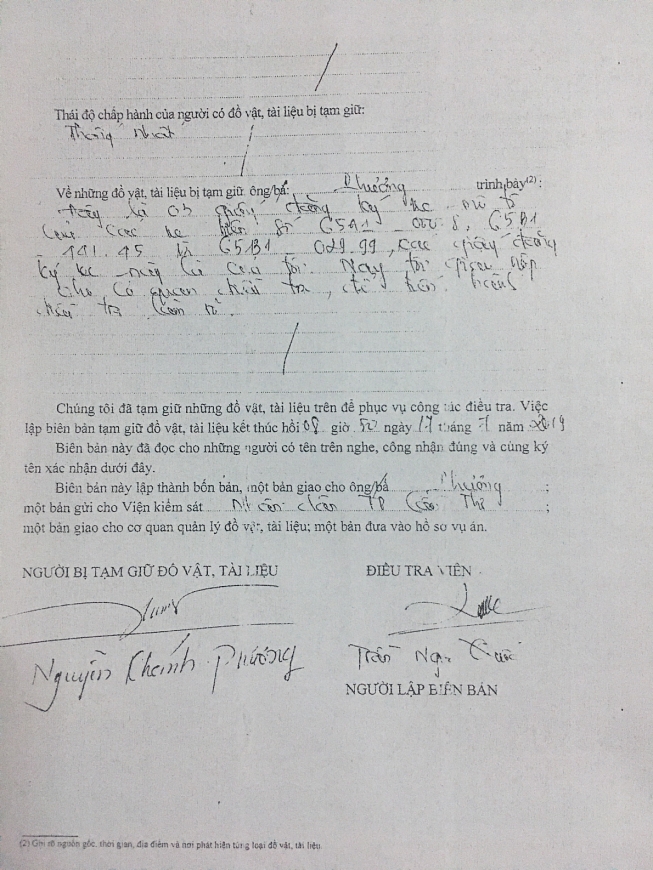 Thái độ chấp hành của người có đồ vật, tài liệu bị tạm giữ:
Thống nhất
Về những đồ vật, tài liệu bị tạm giữ, ông/bà: Phường trình bày(2):
đây là 03 giấy đăng ký xe mô tô
của các xe biển số 65A1 _ 000 8, 65B1
_ 141.45 và 65B1 _ 029.99, các giấy đăng
ký xe này là của tôi. Nay tôi giao nộp
cho Cơ quan điều tra, để tiến hành
điều tra làm rõ.
Chúng tôi đã tạm giữ những đồ vật, tài liệu trên để phục vụ công tác điều tra. Việc
lập biên bản tạm giữ đồ vật, tài liệu kết thúc hồi 08 giờ 50 ngày 17 tháng 7 năm 2019
Biên bản này đã đọc cho những người có tên trên nghe, công nhận đúng và cùng ký
tên xác nhận dưới đây.
Biên bản này lập thành bốn bản, một bản giao cho ông/bà Phường ;
một bản gửi cho Viện kiểm sát Nhân dân TP Cần Thơ ;
một bản giao cho cơ quan quản lý đồ vật, tài liệu; một bản đưa vào hồ sơ vụ án.
NGƯỜI BỊ TẠM GIỮ ĐỒ VẬT, TÀI LIỆU ĐIỀU TRA VIÊN
Nguyễn Khánh Phường Trần
NGƯỜI LẬP BIÊN BẢN
(2) Ghi rõ nguồn gốc, thời gian, địa điểm và nơi phát hiện từng loại đồ vật, tài liệu.